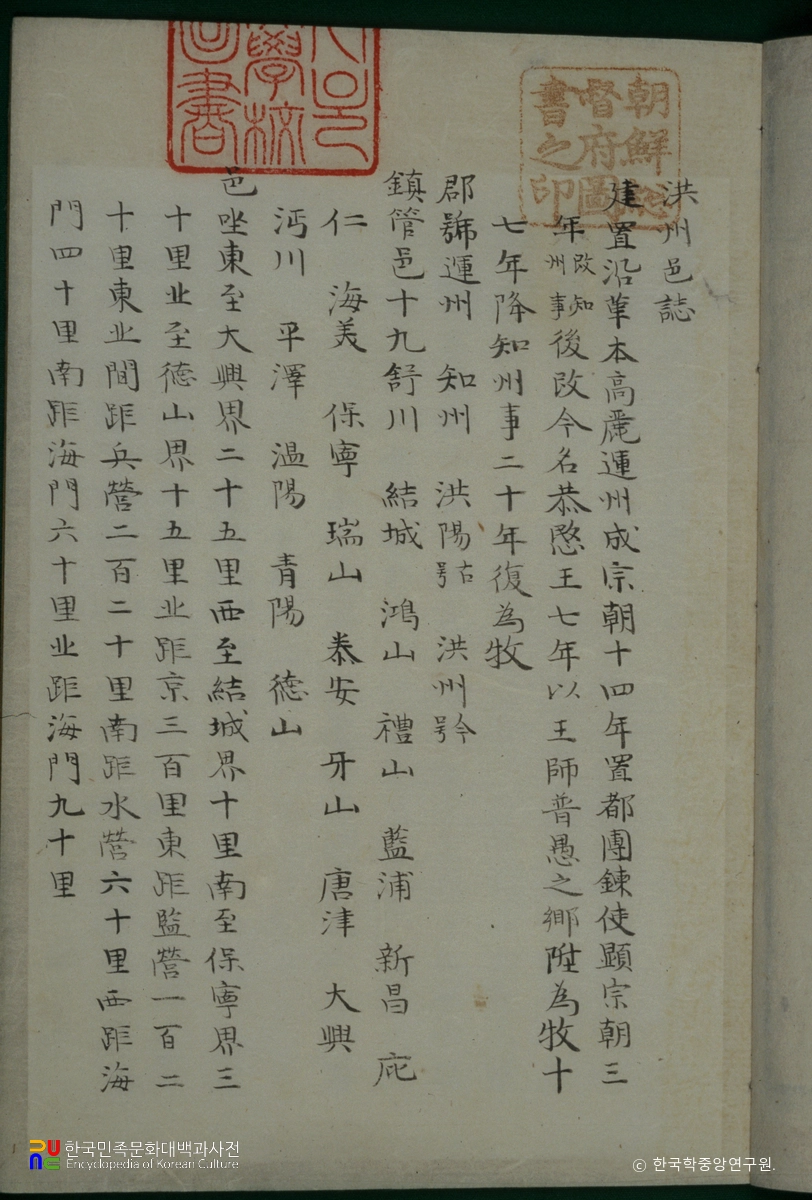 洪州邑誌
建置沿革本高麗運州成宗朝十四年置都團鍊使顯宗朝三
年改知州事後改今名恭愍王七年以王師普愚之鄉陞為牧十
七年降知州事二十年復為牧
郡號運州 知州 洪陽古号 洪州今号
鎮管邑十九舒川 結城 鴻山 禮山 藍浦 新昌 庇
仁 海美 保寧 瑞山 泰安 牙山 唐津 大興
沔川 平澤 溫陽 青陽 德山
邑坐東至大興界二十五里西至結城界十里南至保寧界三
十里北至德山界十五里北距京三百里東距監營一百二
十里東北間距兵營二百二十里南距水營六十里西距海
門四十里南距海門六十里北距海門九十里
朝鮮總督府圖書之印
한국민족문화대백과사전
Encyclopedia of Korean Culture
ⓒ 한국학중앙연구원.